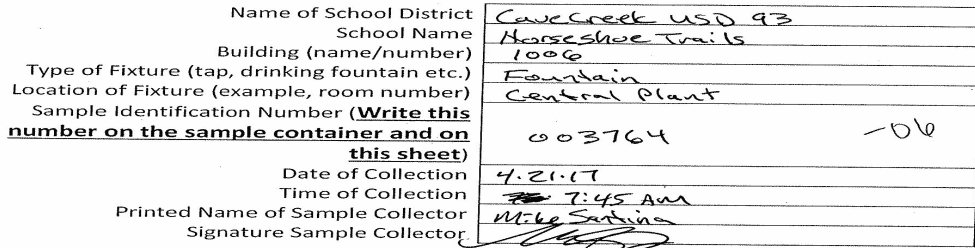 Name of School District Cave Creek USD 93
School Name Horseshoe Trails
Building (name/number) 1006
Type of Fixture (tap, drinking fountain etc.) Fountain
Location of Fixture (example, room number) Central Plant
Sample Identification Number (Write this
number on the sample container and on 003764 -06
this sheet)
Date of Collection 4.21.17
Time of Collection 7:45 AM
Printed Name of Sample Collector Mike Santina
Signature Sample Collector